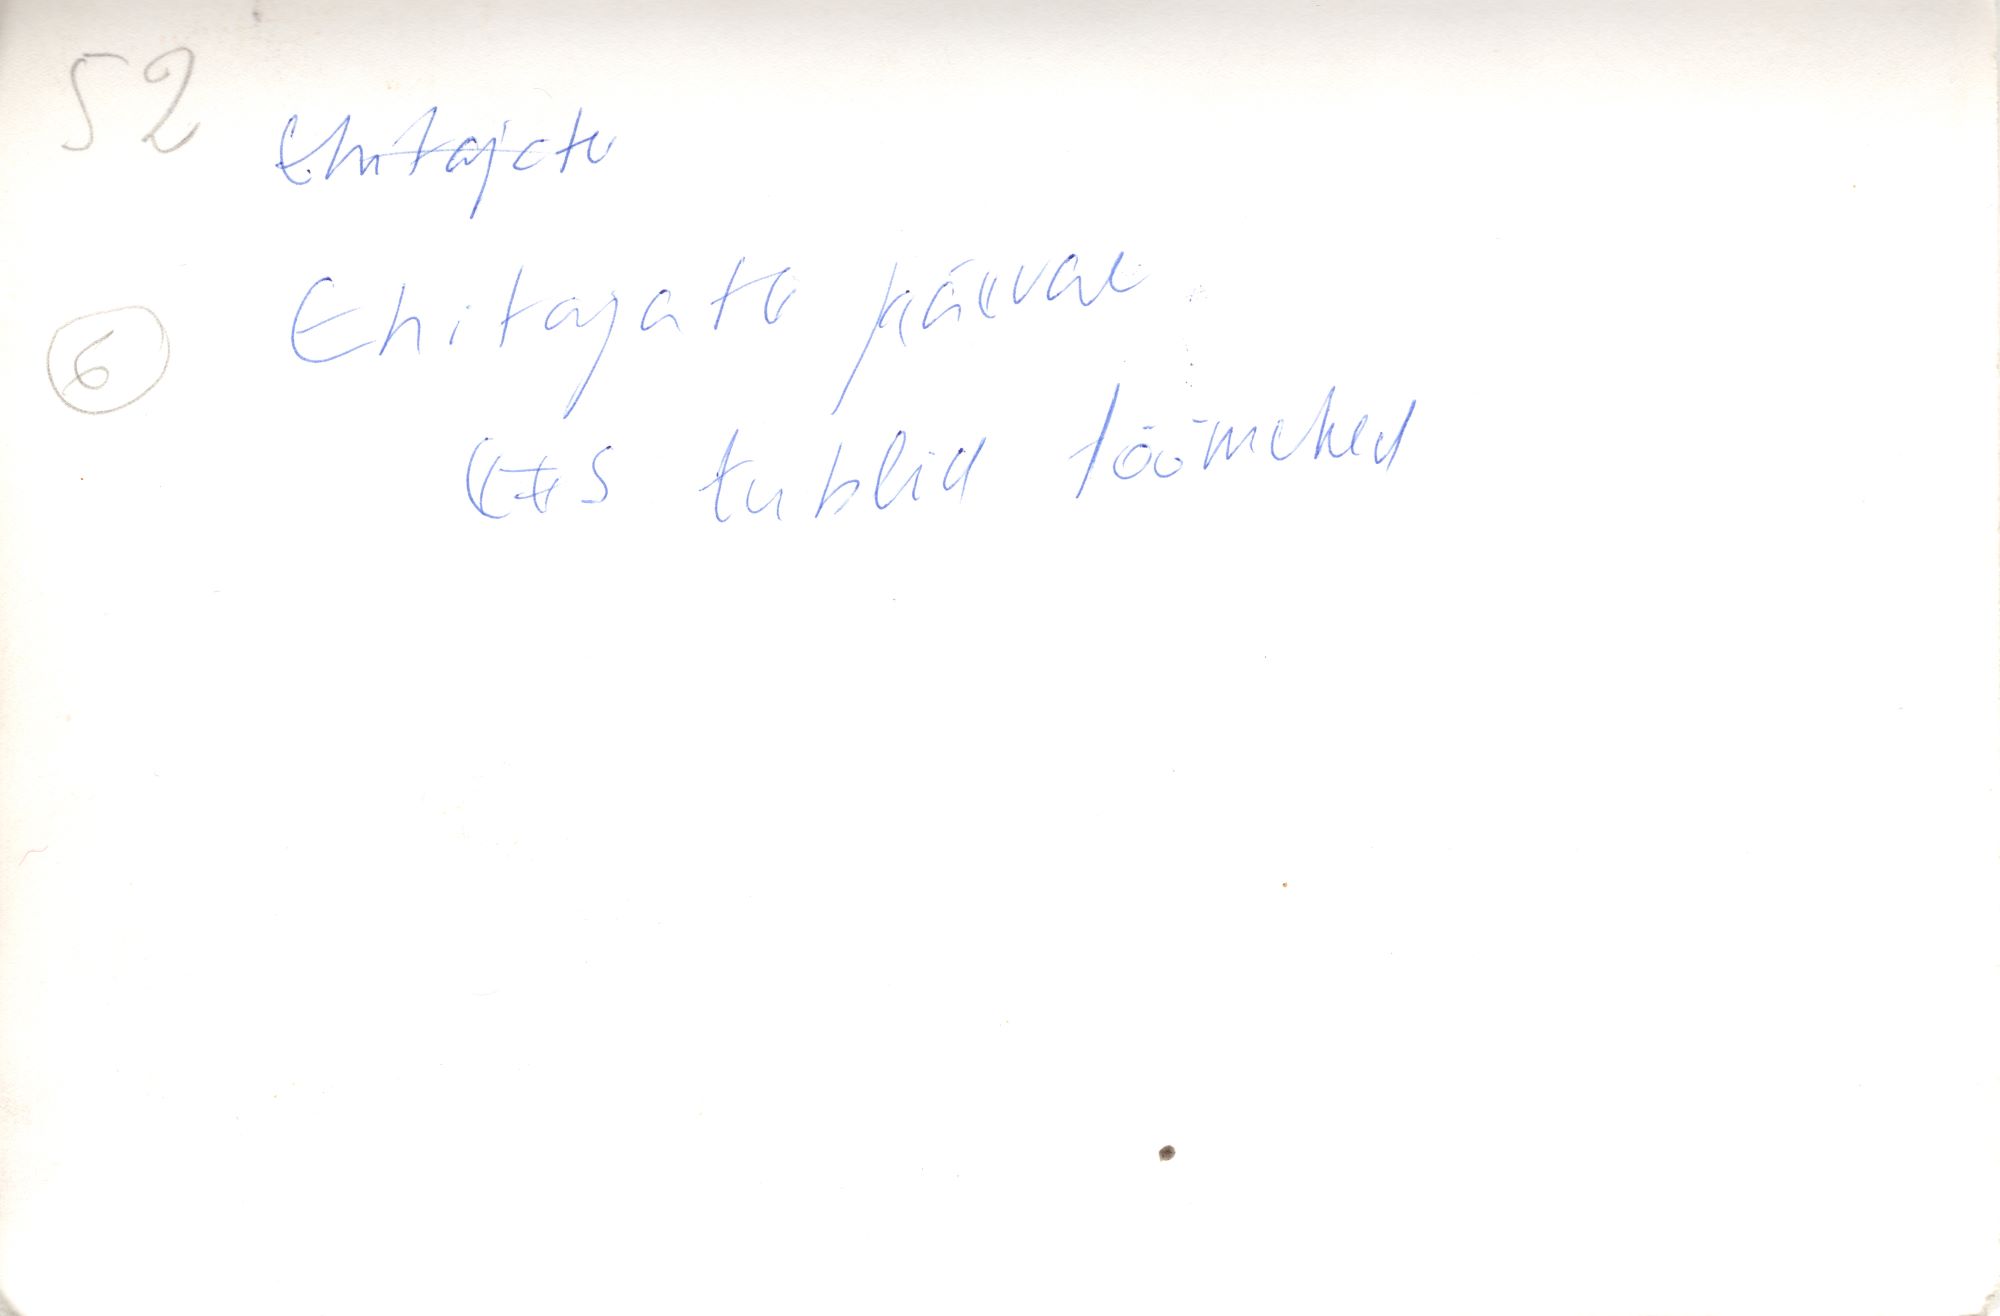 52
Ehitajate
Ehitajate päeval
6
tublid töömehed